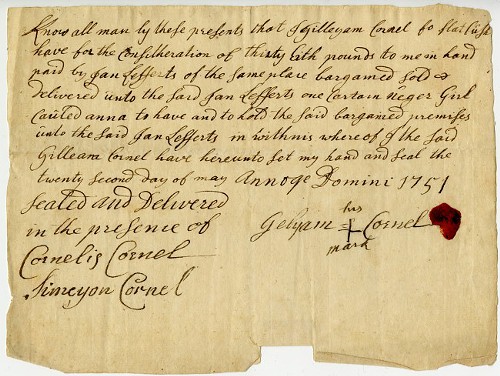 Know all man by these presents that I Gilleyam Cornel fo flat
have for the Consitheration of thirty Eith pounds to me in hand
paid by Jan Lefferts of the same place bargained Sold &
Delivered unto the said Jan Lefferts one Certain Neger Girl
Caulèd anna to have and to hold the said bargained premises
unto the said Jan Lefferts in withnis where of I the Said
Gilleam Cornel have hereunto set my hand and seal the
twenty second day of may Annoqe Domini 1751
Sealed and Delivered
in the presence of
his
Gelyam + Cornel
mark
Cornelis Cornel
Simeyon Cornel